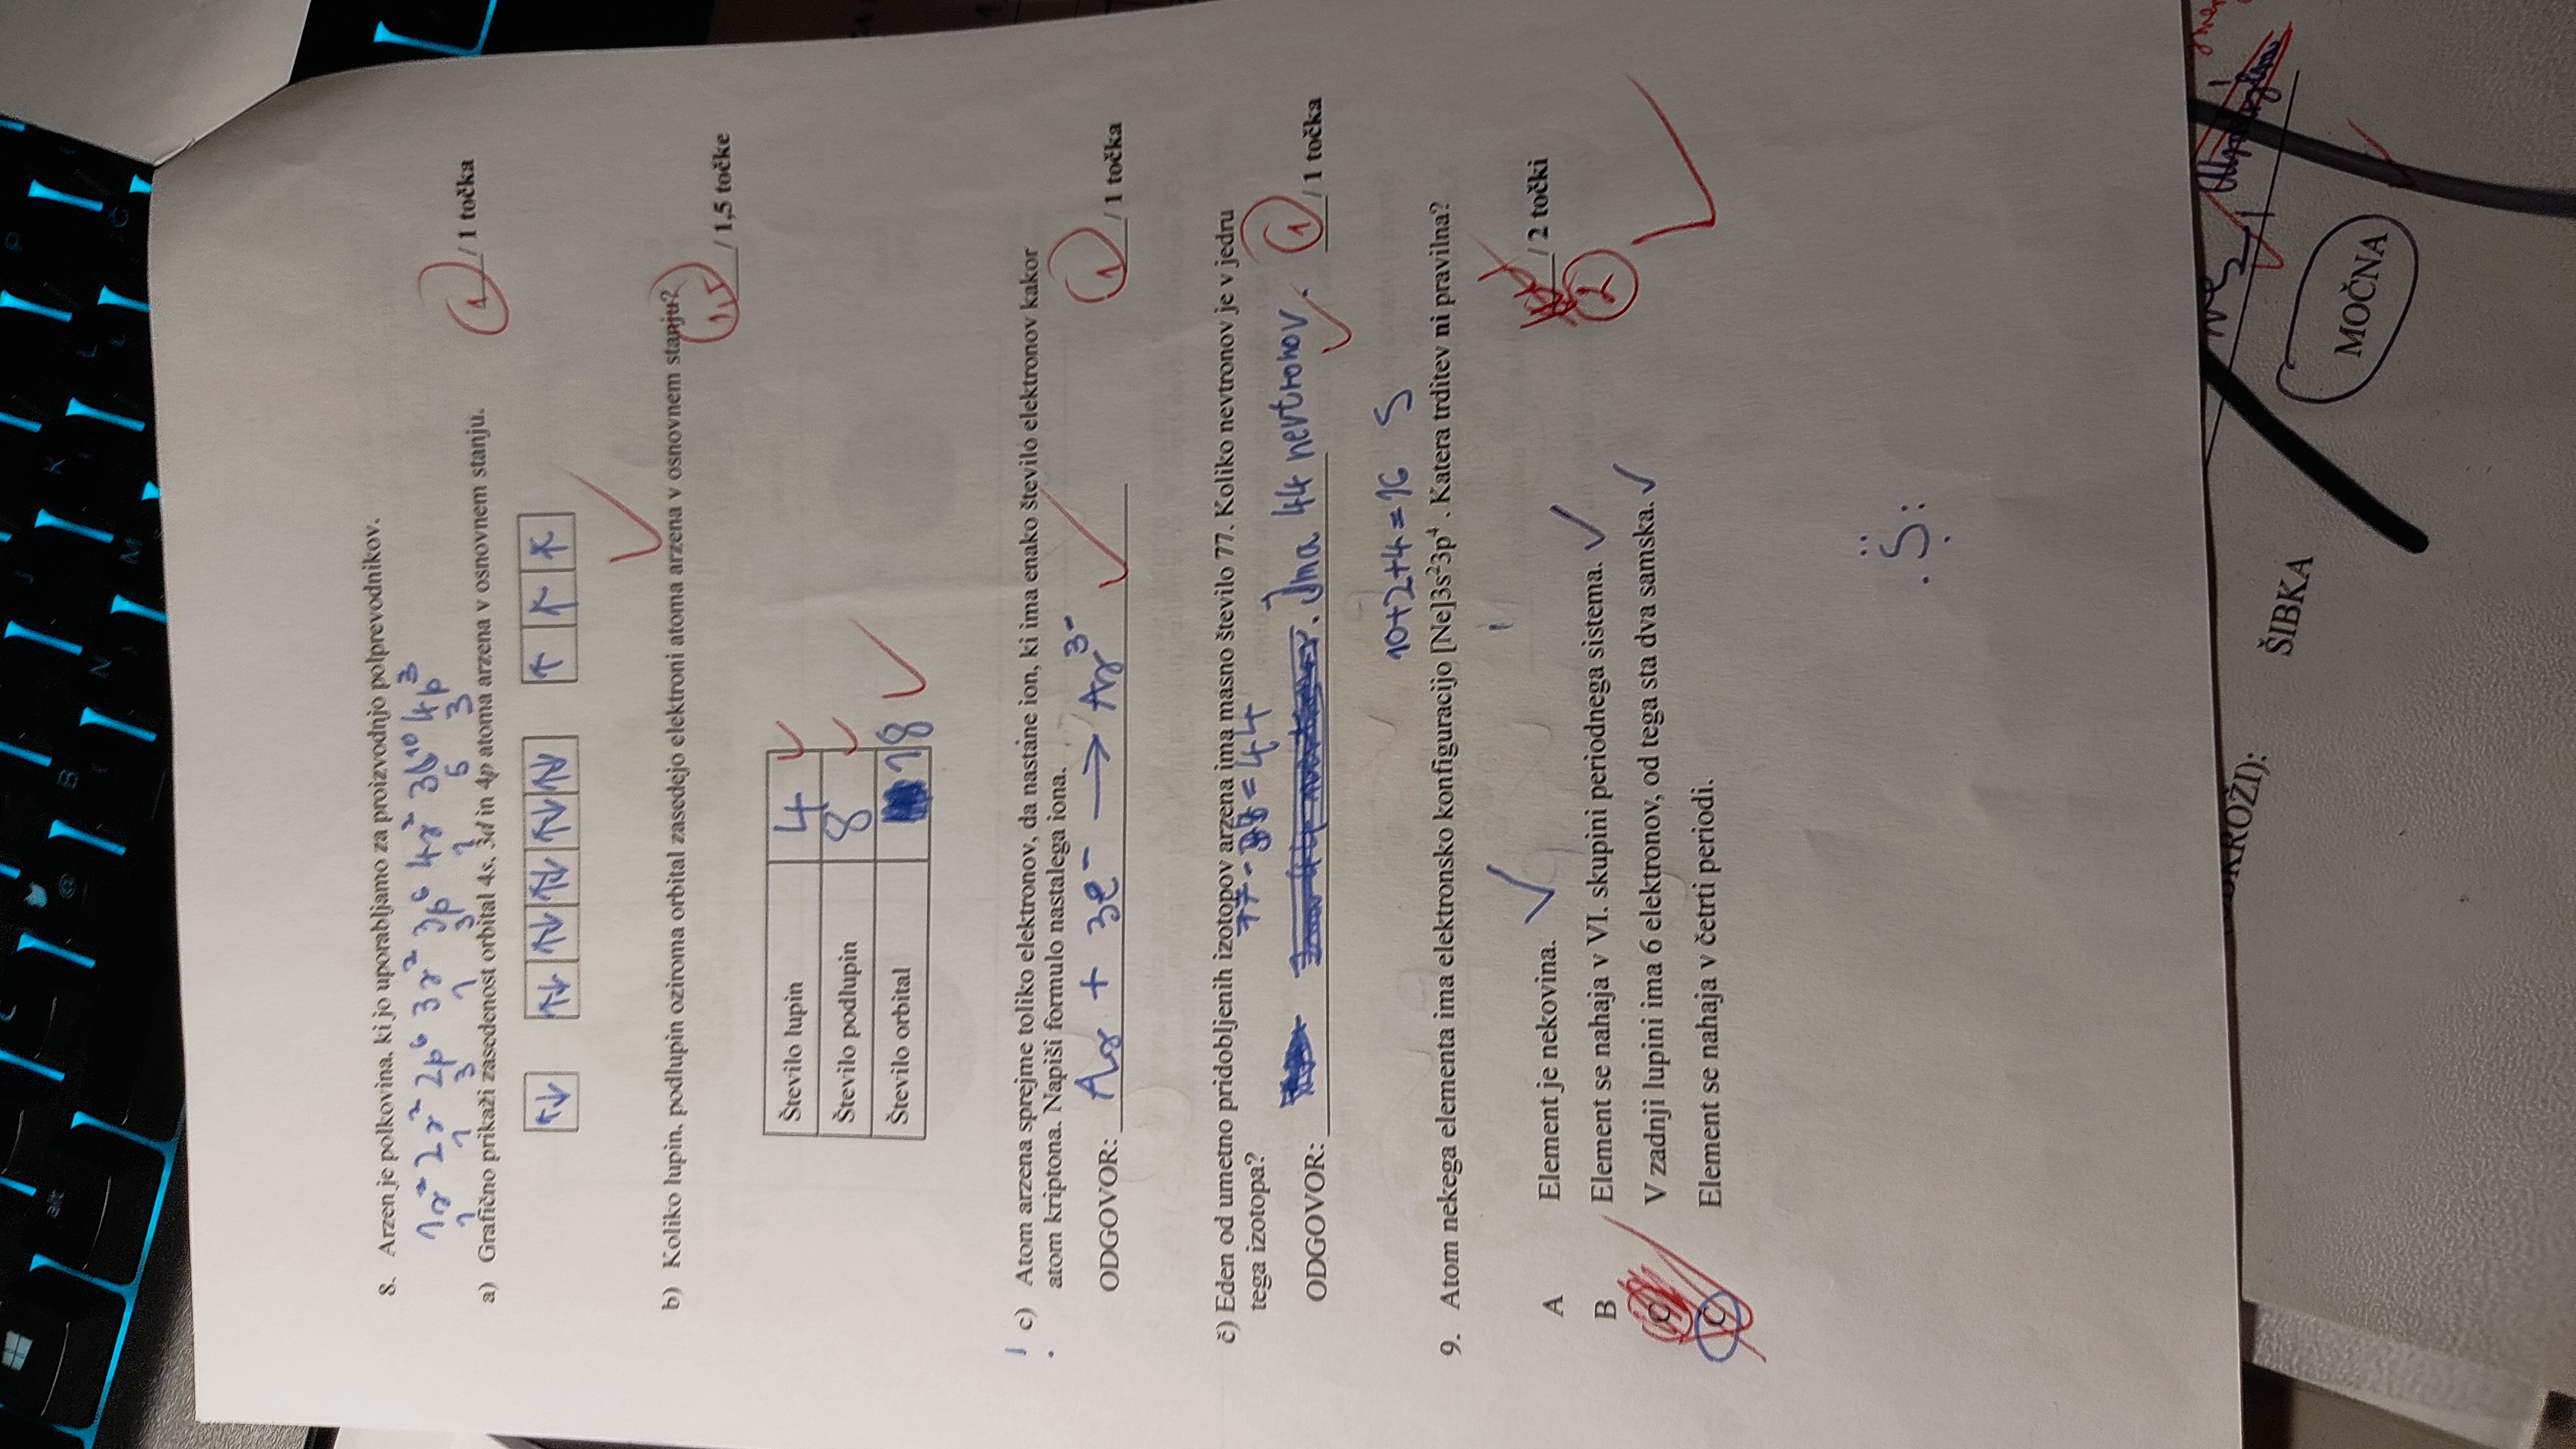 alt
B
N
M
J
K
L
P
Č
8. Arzen je polkovina, ki jo uporabljamo za proizvodnjo polprevodnikov.
1s² 2s² 2p⁶ 3s² 3p⁶ 4s² 3d¹⁰ 4p³
1 1 3 1 3 1 5 3
a) Grafično prikaži zasedenost orbital 4s, 3d in 4p atoma arzena v osnovnem stanju.
1 / 1 točka
↑↓ ↑↓ ↑↓ ↑↓ ↑↓ ↑↓ ↑ ↑ ↑
b) Koliko lupin, podlupin oziroma orbital zasedejo elektroni atoma arzena v osnovnem stanju?
1,5 / 1,5 točke
Število lupin 4
Število podlupin 8
Število orbital 18
! c) Atom arzena sprejme toliko elektronov, da nastane ion, ki ima enako število elektronov kakor
atom kriptona. Napiši formulo nastalega iona.
ODGOVOR: As + 3e⁻ → As³⁻
1 / 1 točka
č) Eden od umetno pridobljenih izotopov arzena ima masno število 77. Koliko nevtronov je v jedru
tega izotopa? 77 - 33 = 44
ODGOVOR: Ima 44 nevtronov.
1 / 1 točka
10+2+4=16 S
9. Atom nekega elementa ima elektronsko konfiguracijo [Ne]3s²3p⁴ . Katera trditev ni pravilna?
/ 2 točki
2
A Element je nekovina.
B Element se nahaja v VI. skupini periodnega sistema.
C V zadnji lupini ima 6 elektronov, od tega sta dva samska.
Č Element se nahaja v četrti periodi.
S
KROŽI):
ŠIBKA
MOČNA